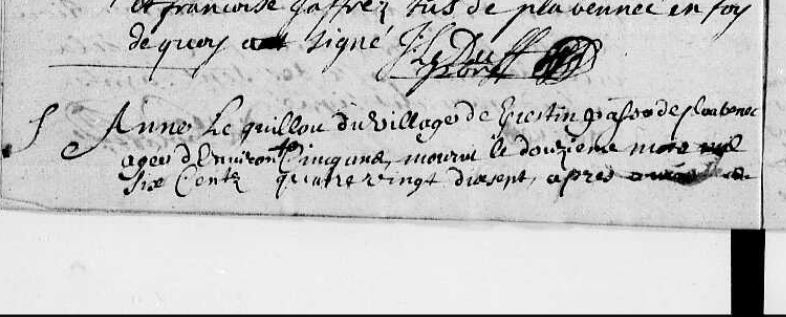 et francoise gaffrez tus de plavennec en foy
de quoy a signé J Le Duff
S Anne Le guillou du village de plabenec
agee d'Environ Cincq ans, mourut le douzieme mars mil
six Centz quatre vingt dixsept, apres